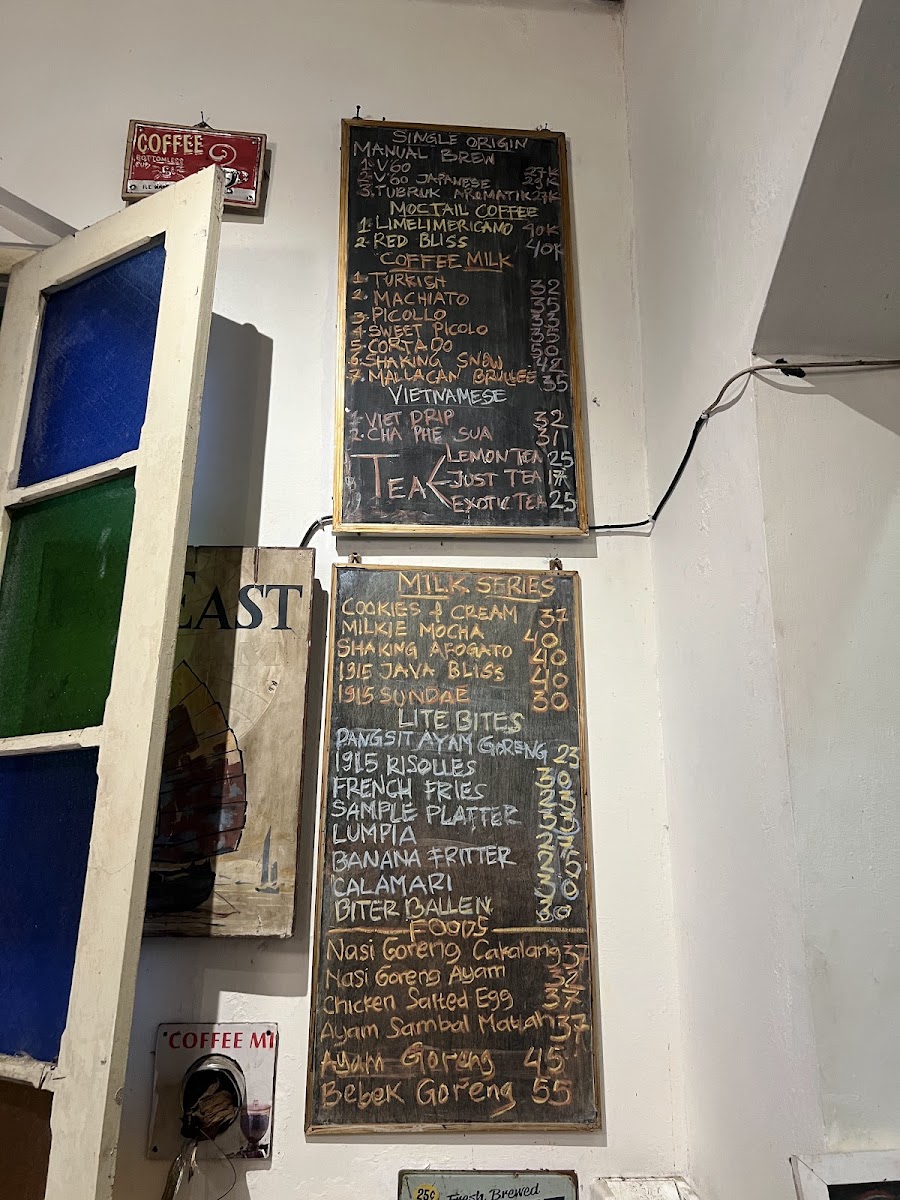 COFFEE
BOTTOMLESS
CUP 5¢
SINGLE ORIGIN
MANUAL BREW
1. V60 27K
2. V60 JAPANESE 29K
3. TUBRUK AROMATIK
MOCTAIL COFFEE
1. LIMELIMERICANO 40K
2. RED BLISS 40K
COFFEE MILK
1. TURKISH 32
2. MACHIATO 35
3. PICOLLO 33
4. SWEET PICOLO 35
5. CORTADO 50
6. SHAKING SNOW 42
7. MALLACAN BRULLEE 35
VIETNAMESE
1. VIET DRIP 32
2. CHA PHE SUA 31
TEA
LEMON TEA 25
JUST TEA 17
EXOTIC TEA 25
EAST
MILK SERIES
COOKIES & CREAM 37
MILKIE MOCHA 40
SHAKING AFOGATO 40
1915 JAVA BLISS 40
1915 SUNDAE 30
LITE BITES
PANGSIT AYAM GORENG 23
1915 RISOLLES 30
FRENCH FRIES 23
SAMPLE PLATTER 33
LUMPIA 27
BANANA FRITTER 25
CALAMARI 30
BITER BALLEN 30
FOODS
Nasi Goreng Cakalang 37
Nasi Goreng Ayam 32
Chicken Salted Egg 37
Ayam Sambal Matah 37
Ayam Goreng 45
Bebek Goreng 55
COFFEE MI
25¢ Fresh Brewed